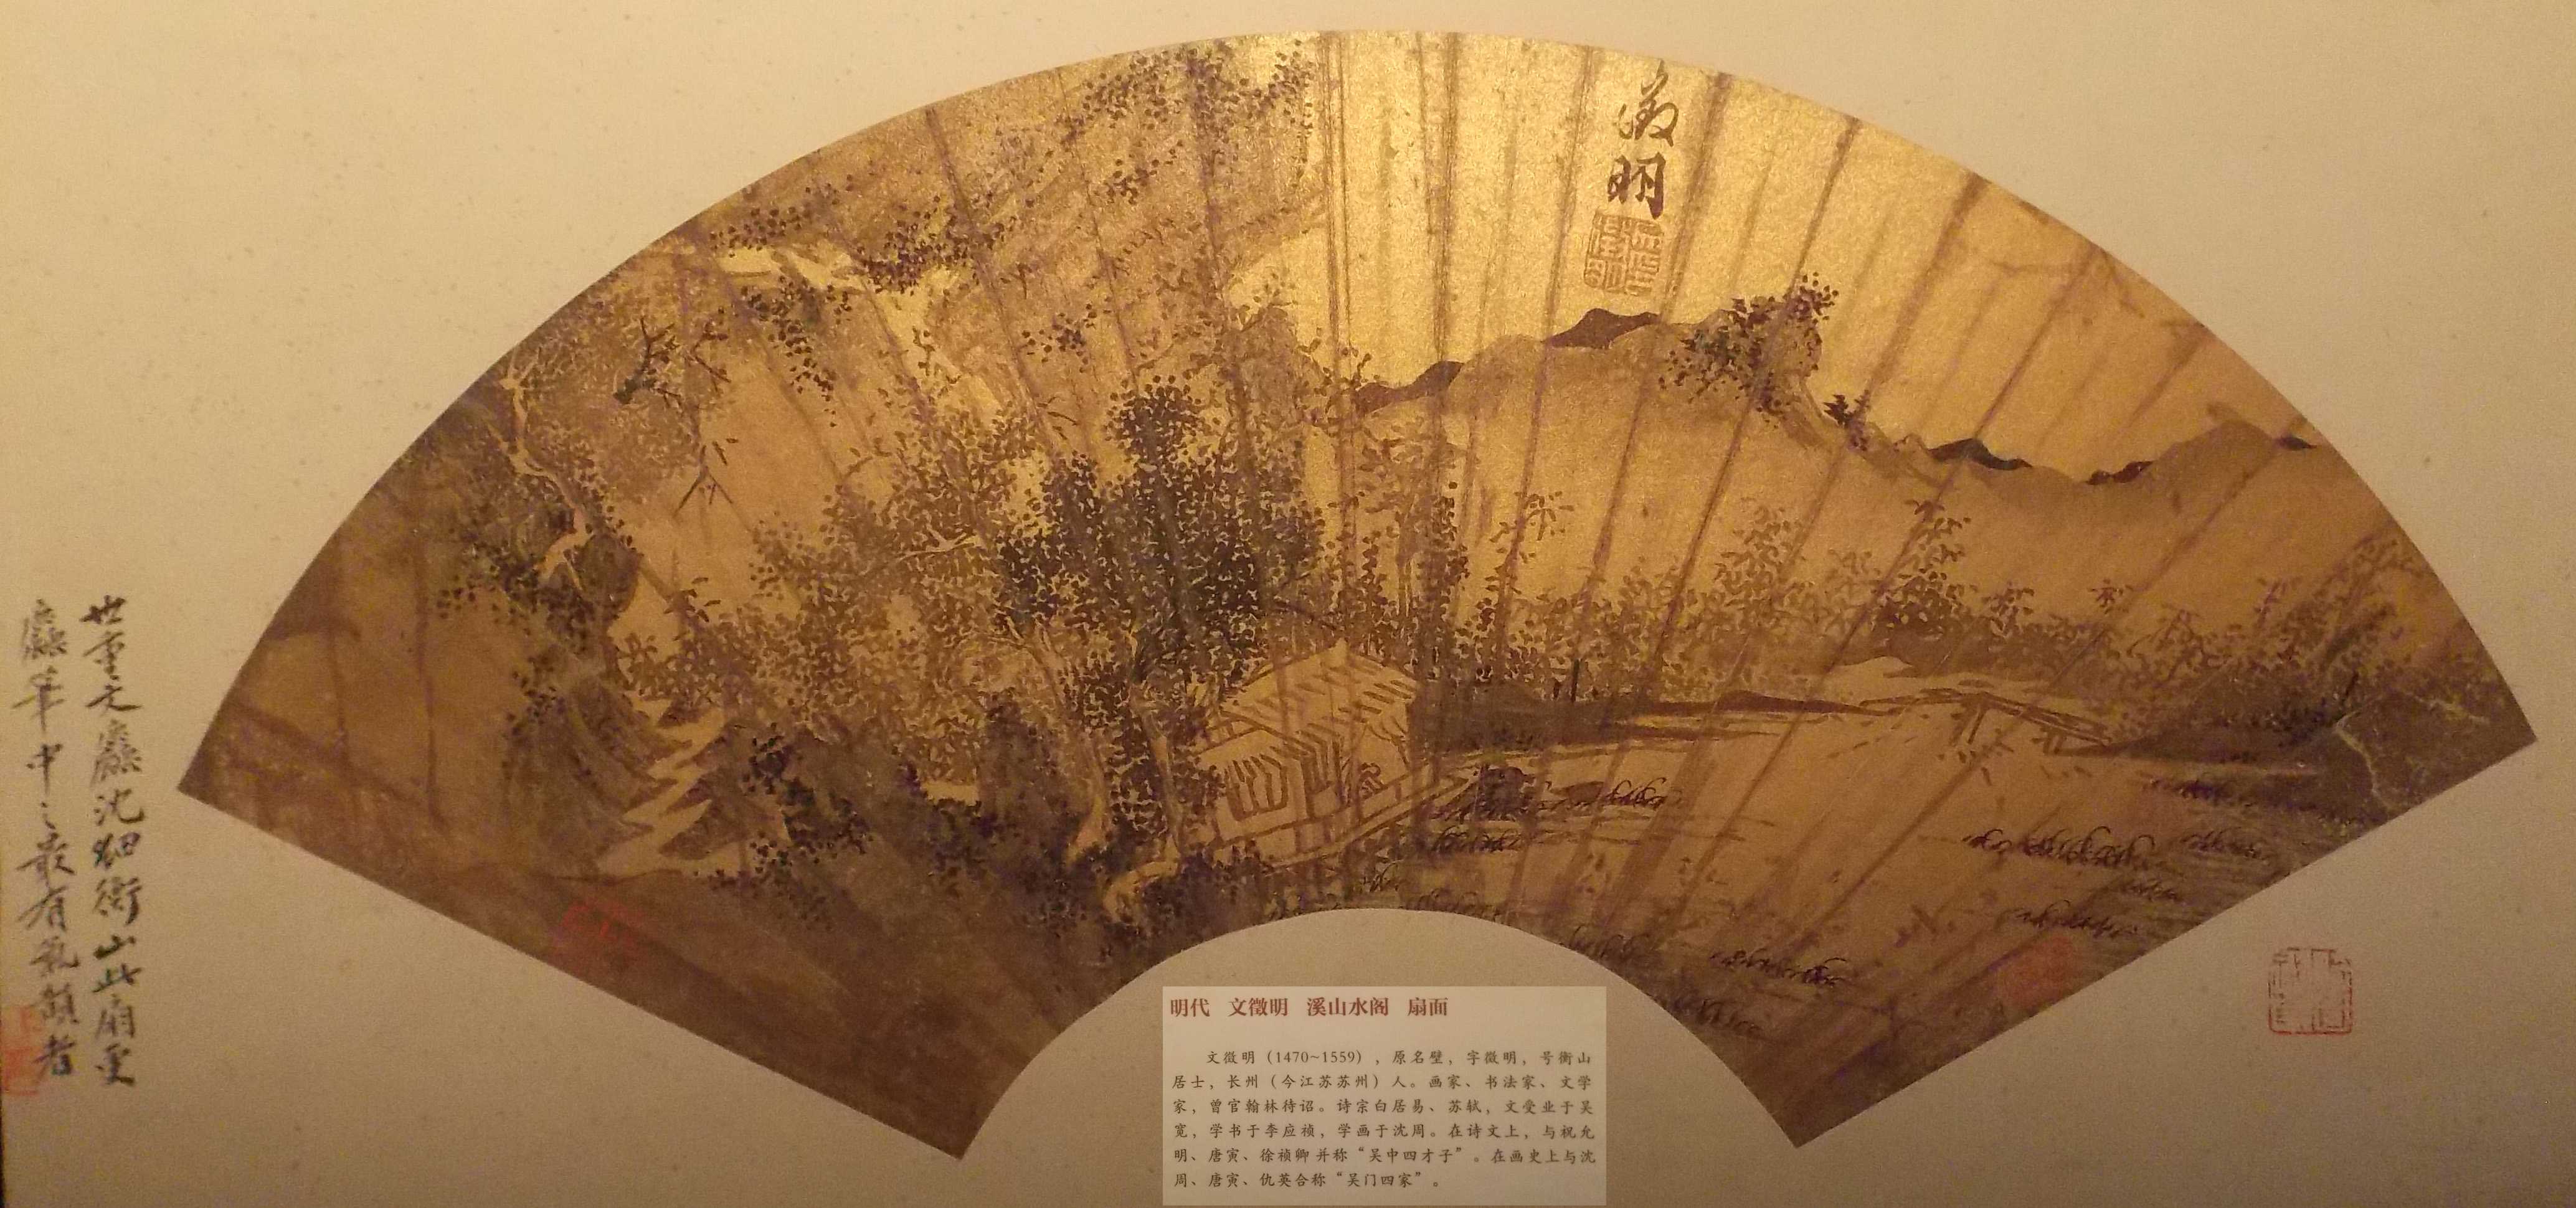 徴明
明代 文徵明 溪山水阁 扇面
文徵明（1470~1559），原名壁，字徵明，号衡山
居士，长州（今江苏苏州）人。画家、书法家、文学
家，曾官翰林待诏。诗宗白居易、苏轼，文受业于吴
宽，学书于李应祯，学画于沈周。在诗文上，与祝允
明、唐寅、徐祯卿并称“吴中四才子”。在画史上与沈
周、唐寅、仇英合称“吴门四家”。
世重文麤沈細衡山此扇更
麤筆中之最有氣韻者